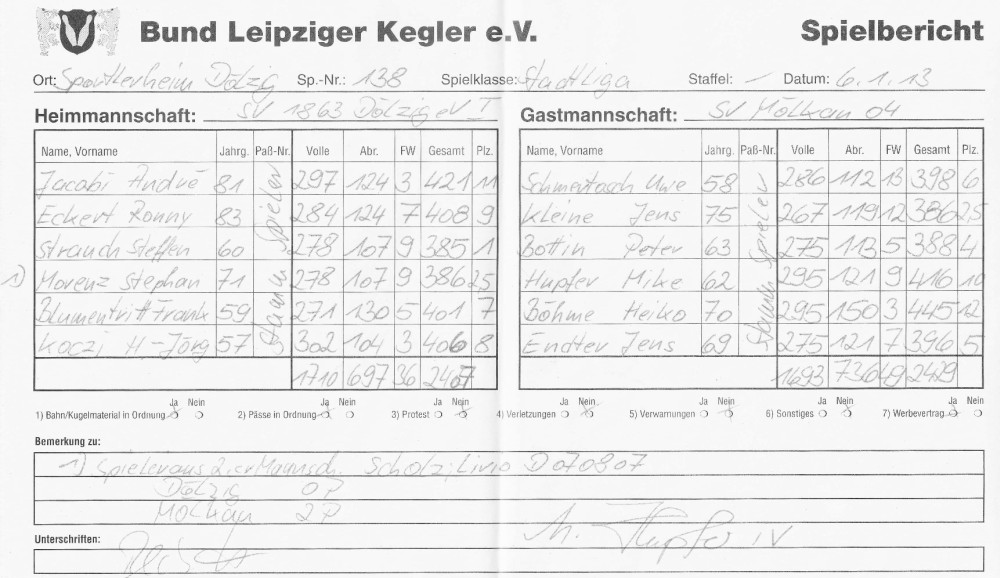 Bund Leipziger Kegler e.V. Spielbericht
Ort: Sportlerheim Dölzig Sp.-Nr.: 138 Spielklasse: Stadtliga Staffel: – Datum: 6.1.13
Heimmannschaft: SV 1863 Dölzig eV I Gastmannschaft: SV Mölkau 04
Name, Vorname Jahrg. Paß-Nr. Volle Abr. FW Gesamt Plz. Name, Vorname Jahrg. Paß-Nr. Volle Abr. FW Gesamt Plz.
Jacobi André 81 297 124 3 421 11 Schmertosch Uwe 58 286 112 13 398 6
Eckert Ronny 83 284 124 7 408 9 Kleine Jens 75 267 119 12 386 2,5
Strauch Steffen 60 278 107 9 385 1 Bottin Peter 63 275 113 5 388 4
1) Morenz Stephan 71 278 107 9 386 2,5 Hupfer Mike 62 295 121 9 416 10
Blumentritt Frank 59 271 130 5 401 7 Böhme Heiko 70 295 150 3 445 12
Koczi H-Jörg 57 302 104 3 406 8 Endter Jens 69 275 121 7 396 5
Stamm Spieler Stamm Spieler
1710 697 36 2407 1693 736 49 2429
Ja Nein Ja Nein Ja Nein Ja Nein Ja Nein Ja Nein Ja Nein
1) Bahn/Kugelmaterial in Ordnung 2) Pässe in Ordnung 3) Protest 4) Verletzungen 5) Verwarnungen 6) Sonstiges 7) Werbevertrag
Bemerkung zu:
1) Spieler aus 2.er Mannsch. Scholz, Livio D070807
Dölzig 0P
Mölkau 2P
Unterschriften: M. Hupfer IV